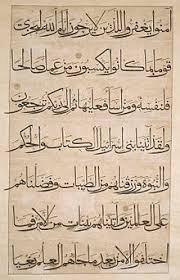 آمنوا يغفروا للذين لا يرجون أيام الله ليجزي
قوما بما كانوا يكسبون من عمل صالحا
فلنفسه ومن أساء فعليها ثم إلى ربكم ترجعون
ولقد آتينا بني إسرائيل الكتاب والحكم
والنبوة ورزقناهم من الطيبات وفضلناهم
على العالمين وآتيناهم بينات من الأمر فما
اختلفوا إلا من بعد ما جاءهم العلم بغيا